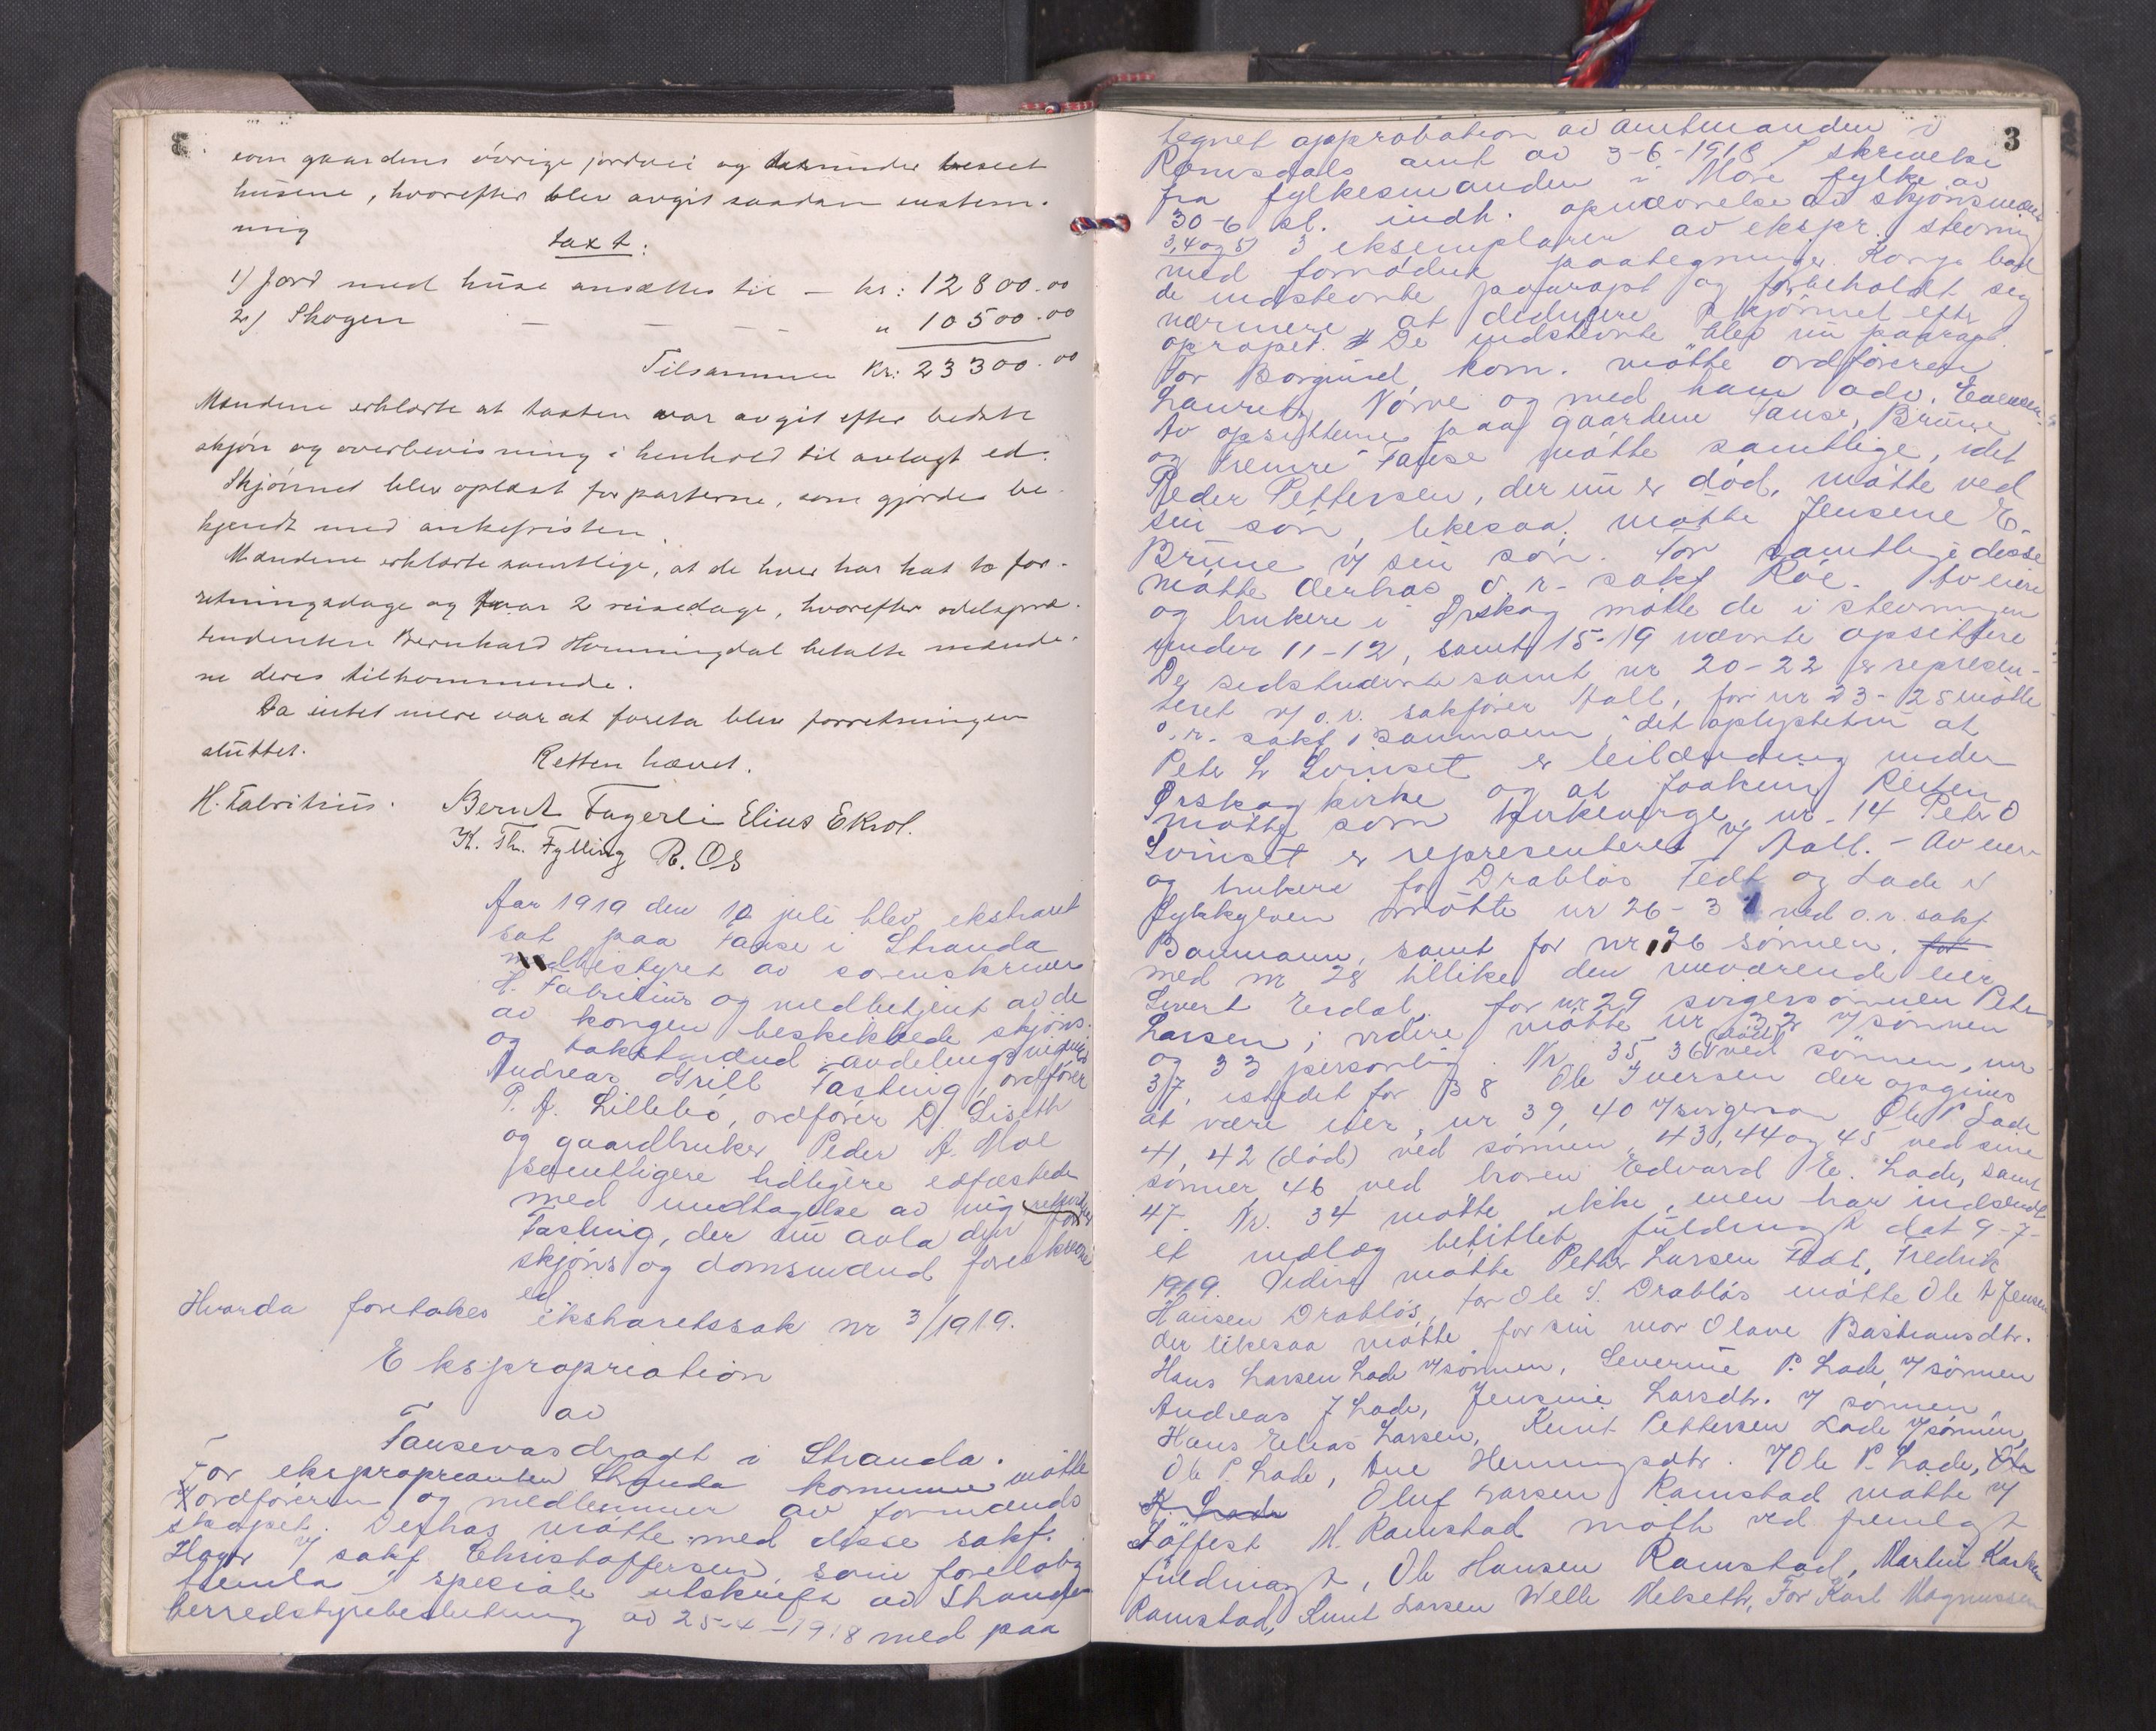 som gaardens övrige jordvei og derunder beseet
husene, hvorefter blev avgit saadan enstem-
mig
taxt:
1) Jord med huse ansættes til — kr: 12800.00
2) Skogen — — — — " 10500.00
Tilsammen Kr: 23300.00
Mændene erklærte at taxten var avgit efter bedste
skjön og overbevisning i henhold til avlagt ed.
Skjönnet blev oplæst for parterne, som gjördes be-
kjendt med ankefristen.
Mændene erklærte samtlige, at de hver har hat to for-
retningsdage og har 2 reisedage, hvorefter odelspræ-
tendenten Bernhard Hommingdal betalte mænde-
ne deres tilkommende.
Da intet mere var at foreta blev forretningen
sluttet.
Retten hævet.
H. Fabritius. Bernt Fagerli Elius Ekrol.
K. Th. Fylling R. Os
Aar 1919 den 10 juli blev ekstraret
sat paa Fause i Stranda
bestyret av sorenskriver
H. Fabritius og medbetjent av de
av kongen beskikkede skjöns-
og takstmænd avdelingsingeniör
Andreas Grill Fasting, ordförer
P. A. Lillebö, ordförer D. Liseth
og gaardbruker Peder A. Moe
samtligere tidligere edfæstede
med undtagelse av ing
Fasting, der nu avla den for
skjöns og domsmænd foreskrevne
ed
Hvorda foretakes ekstraretssak nr 3/1919.
Ekspropriation
av
Fausevasdraget i Stranda.
For eksproprianten Stranda kommune mötte
ordföreren og medlemmer av formænds
skapet. Derhos mötte med disse sakf.
Hagr v/ sakf Christoffersen, som foreløbig
fremla 1 speciale utskrift av Stranda
herredstyrebeslutning av 25-4-1918 med paa
3
tegnet approbation av amtmanden i
Romsdals amt av 3-6-1918 skrivelse
fra fylkesmanden i Möre fylke av
30-6 sl. indh. opnævnelse av skjönsmænd
3, 4 og 5) 3 eksemplarer av ekspr. stevning
med fornödne paategninger. Han bad
de indstevnte paaropt og forbeholdt seg
nærmere at deducere skjönnet efter
opropet. De indstevnte blev nu paaropt.
For Borgund kom. mötte ordföreren
Laurits Nörve og med ham adv.
Av opsitterne paa gaardene Fause, Brune
og Fremre Fause mötte samtlige, idet
Peder Pettersen, der nu er död, mötte ved
sin sön, likesaa mötte Jensine E.
Brune v/ sin sön. For samtlige disse
mötte derhos o.r. sakf Röe. Av eiere
og brukere i Ørskog mötte de i stevningen
under 11-12, samt 15-19 nævnte opsittere
De sidstnævnte samt nr 20-22 er represen-
teret v/ o.r. sakförer Aall, for nr 23-25 mötte
o.r. sakf Baumann, det oplystes at
Peter L Svinset er leilænding under
Ørskog kirke og at Joakim Reiten
mötte som kirkeverge, nr. 14 Peter O
Svinset er representeret v/ Aall. - Av eiere
og brukere for Drabløs Fedt og Lade i
Sykkylven mötte nr 26-31 ved o.r. sakf
Baumann, samt for nr 26 sönnen, for
med nr 28 tillike den nuværende eier
Sivert Erdal, for nr 29 svigersönnen Peter
Larsen; videre mötte nr 32 v/ sönnen
og 33 personlig. Nr 35, 36 (död) ved sönnen, nr
37, istedet for 38 Ole Iversen der opgives
at være eier, nr 39, 40 v/ svigersön Ole P. Lade
41, 42 (död) ved sönnen, 43, 44 og 45 ved sine
sönner, 46 ved broren Edvard E. Lade, samt
47. Nr. 34 mötte ikke, men har indsendt
et indlæg betitlet fuldmagt dat 9-7-
1919. Videre mötte Petter Larsen Fedt, Fredrik
Hansen Drabløs, for Ole S. Drabløs mötte Ole A Jensen
der likesaa mötte for sin mor Olave Bastiansdtr.
Hans Larsen Lade v/ sönnen, Severine P. Lade, v/ sönnen
Andreas J Lade, Jensine Larsdtr. v/ sönnen,
Hans Elias Larsen, Knut Pettersen Lade v/ sönnen,
Ole P. Lade, Ane Henningsdtr. v/ Ole P. Lade, Ole
K. Lade Oluf Larsen Ramstad mötte v/
M. Ramstad mötte ved fremlagt
fuldmagt, Ole Hansen Ramstad, Martin Karlsen
Ramstad, Knut Larsen Welle Melseth, For Karl Magnussen